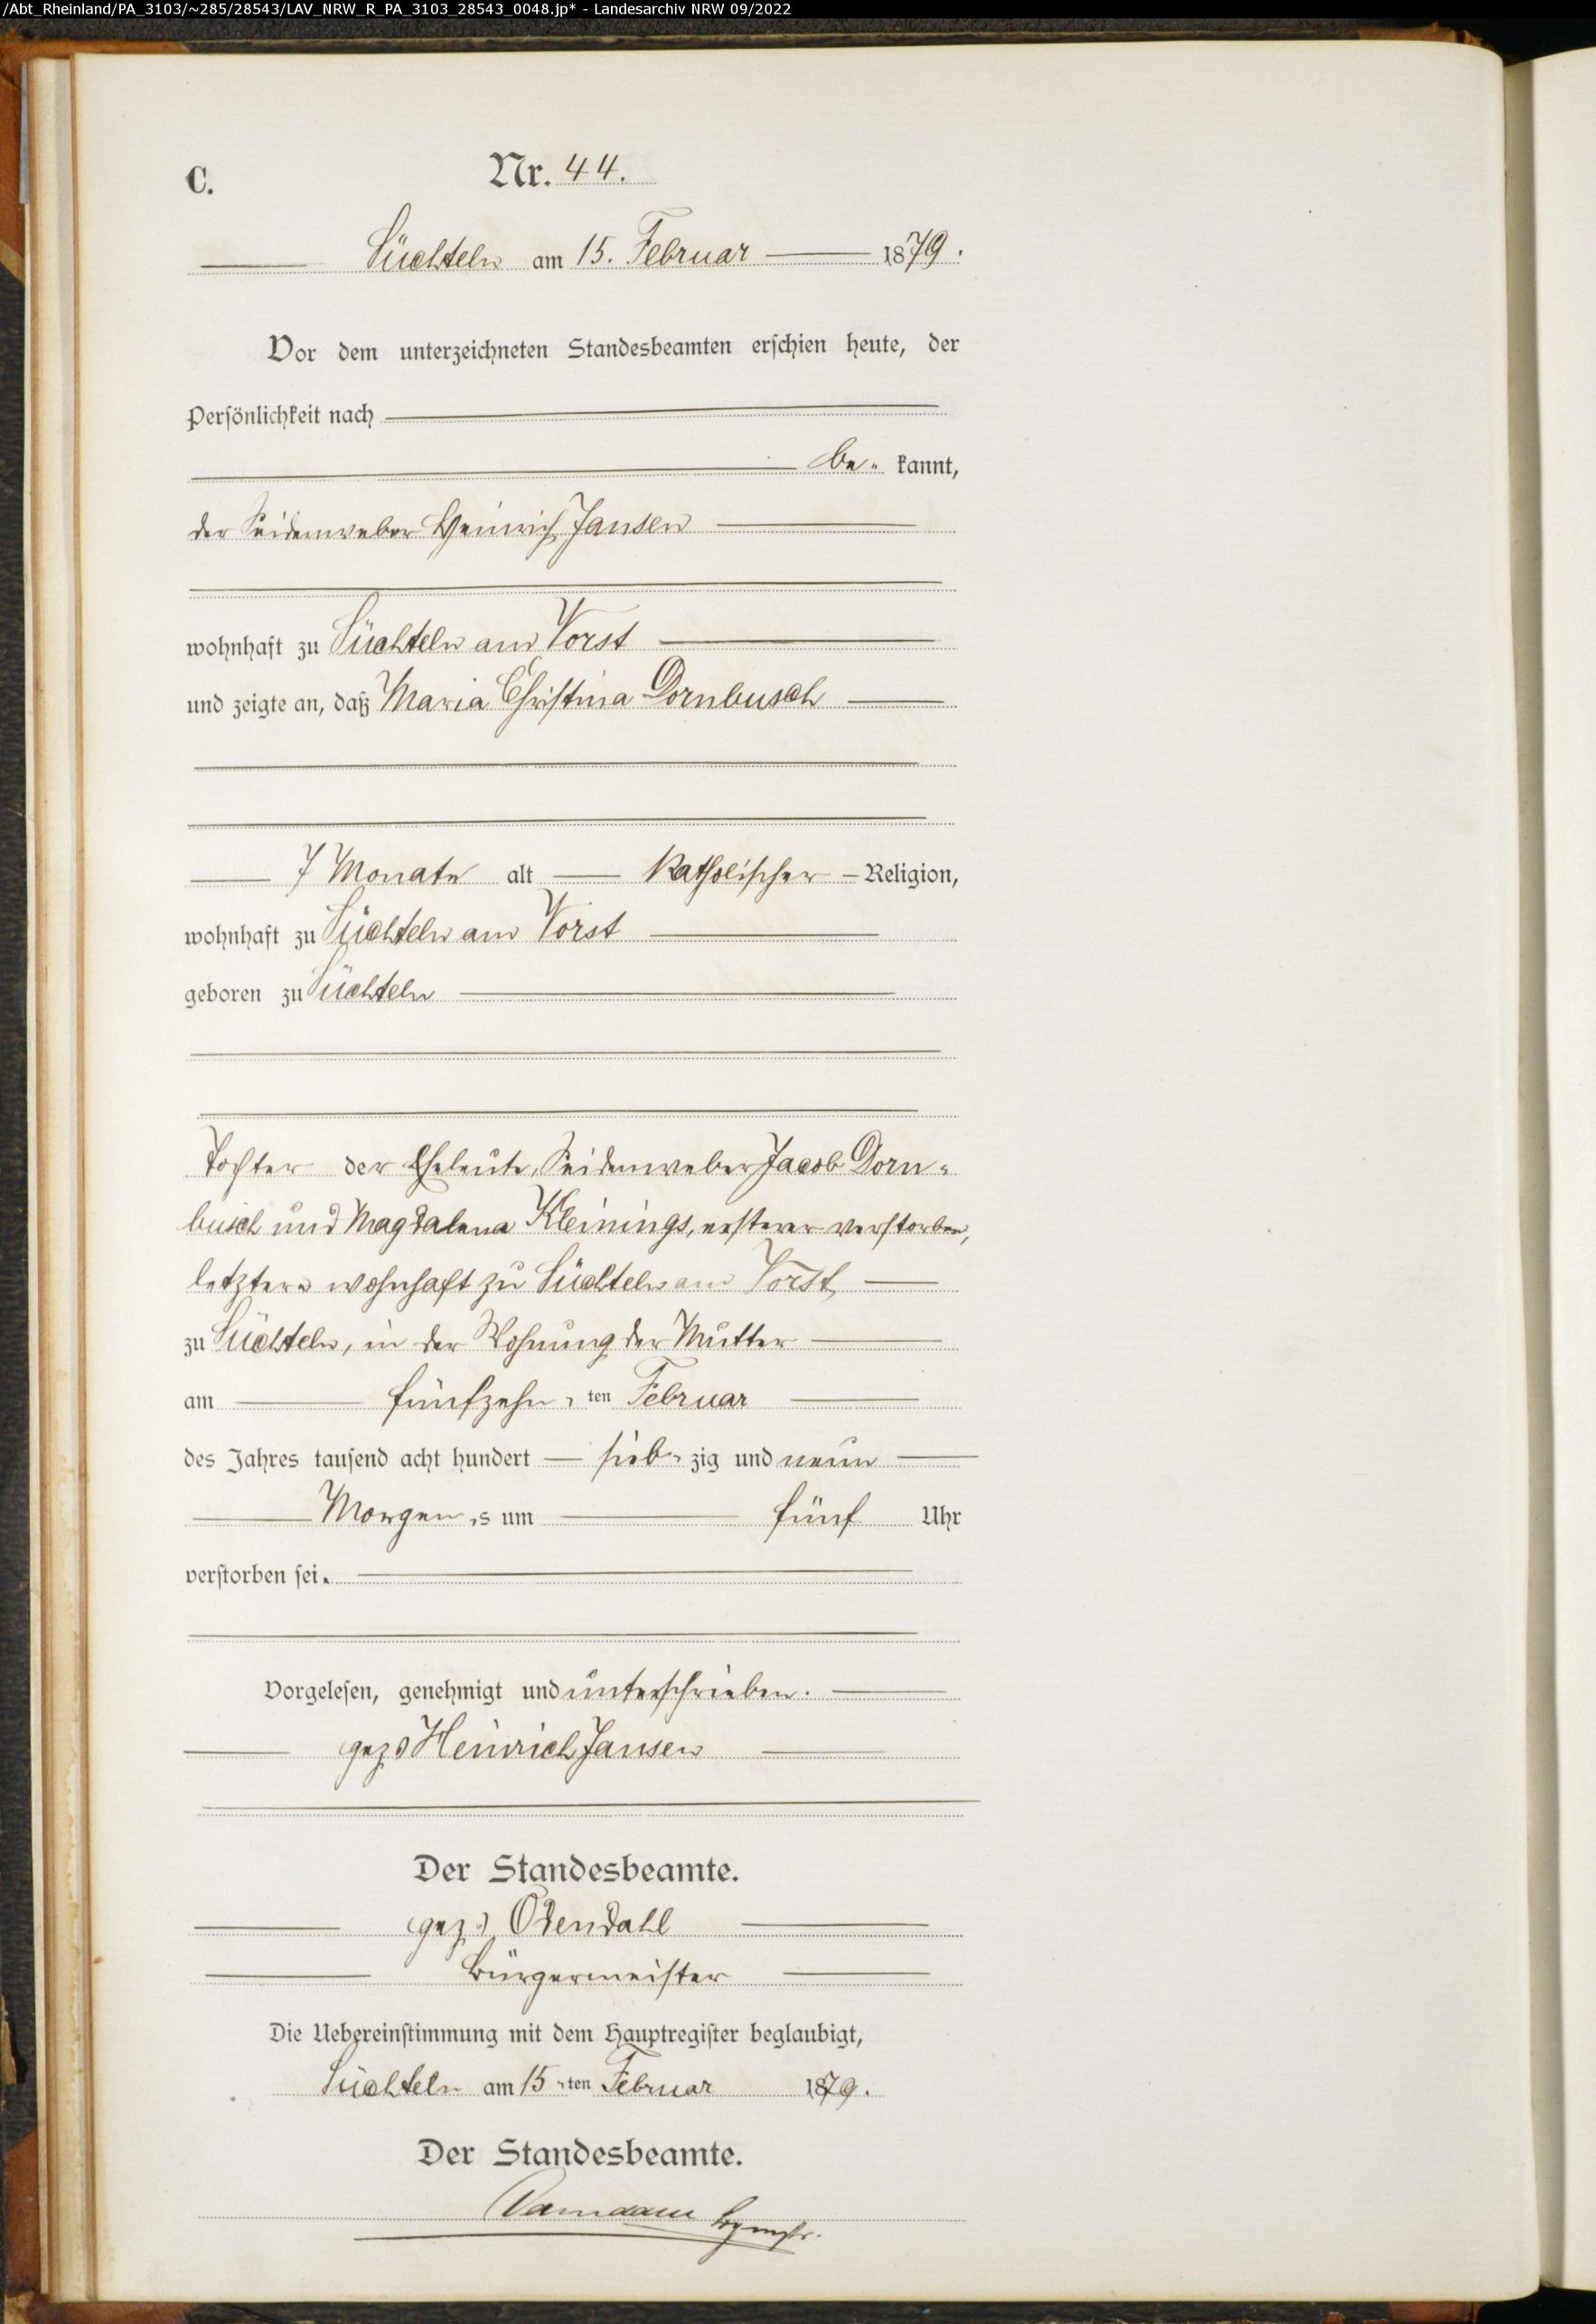 /Abt_Rheinland/PA_3103/~285/28543/LAV_NRW_R_PA_3103_28543_0048.jp* - Landesarchiv NRW 09/2022
C. Nr. 44.
Süchteln am 15. Februar 1879.
Vor dem unterzeichneten Standesbeamten erschien heute, der
Persönlichkeit nach
be- kannt,
der Seidenweber Heinrich Jansen
wohnhaft zu Süchteln am Vorst
und zeigte an, daß Maria Christina Dornbusch
7 Monate alt katholischer Religion,
wohnhaft zu Süchteln am Vorst
geboren zu Süchteln
Tochter der Eheleute, Seidenweber Jacob Dorn-
busch und Magdalena Kleinings, ersterer verstorben,
letztere wohnhaft zu Süchteln am Vorst,
zu Süchteln, in der Wohnung der Mutter
am fünfzehn ten Februar
des Jahres tausend acht hundert sieb- zig und neun
Morgen s um fünf Uhr
verstorben sei.
Vorgelesen, genehmigt und unterschrieben.
gez) Heinrich Jansen
Der Standesbeamte.
(gez.) Odendahl
Bürgermeister
Die Uebereinstimmung mit dem Hauptregister beglaubigt,
Süchteln am 15 ten Februar 1879.
Der Standesbeamte.